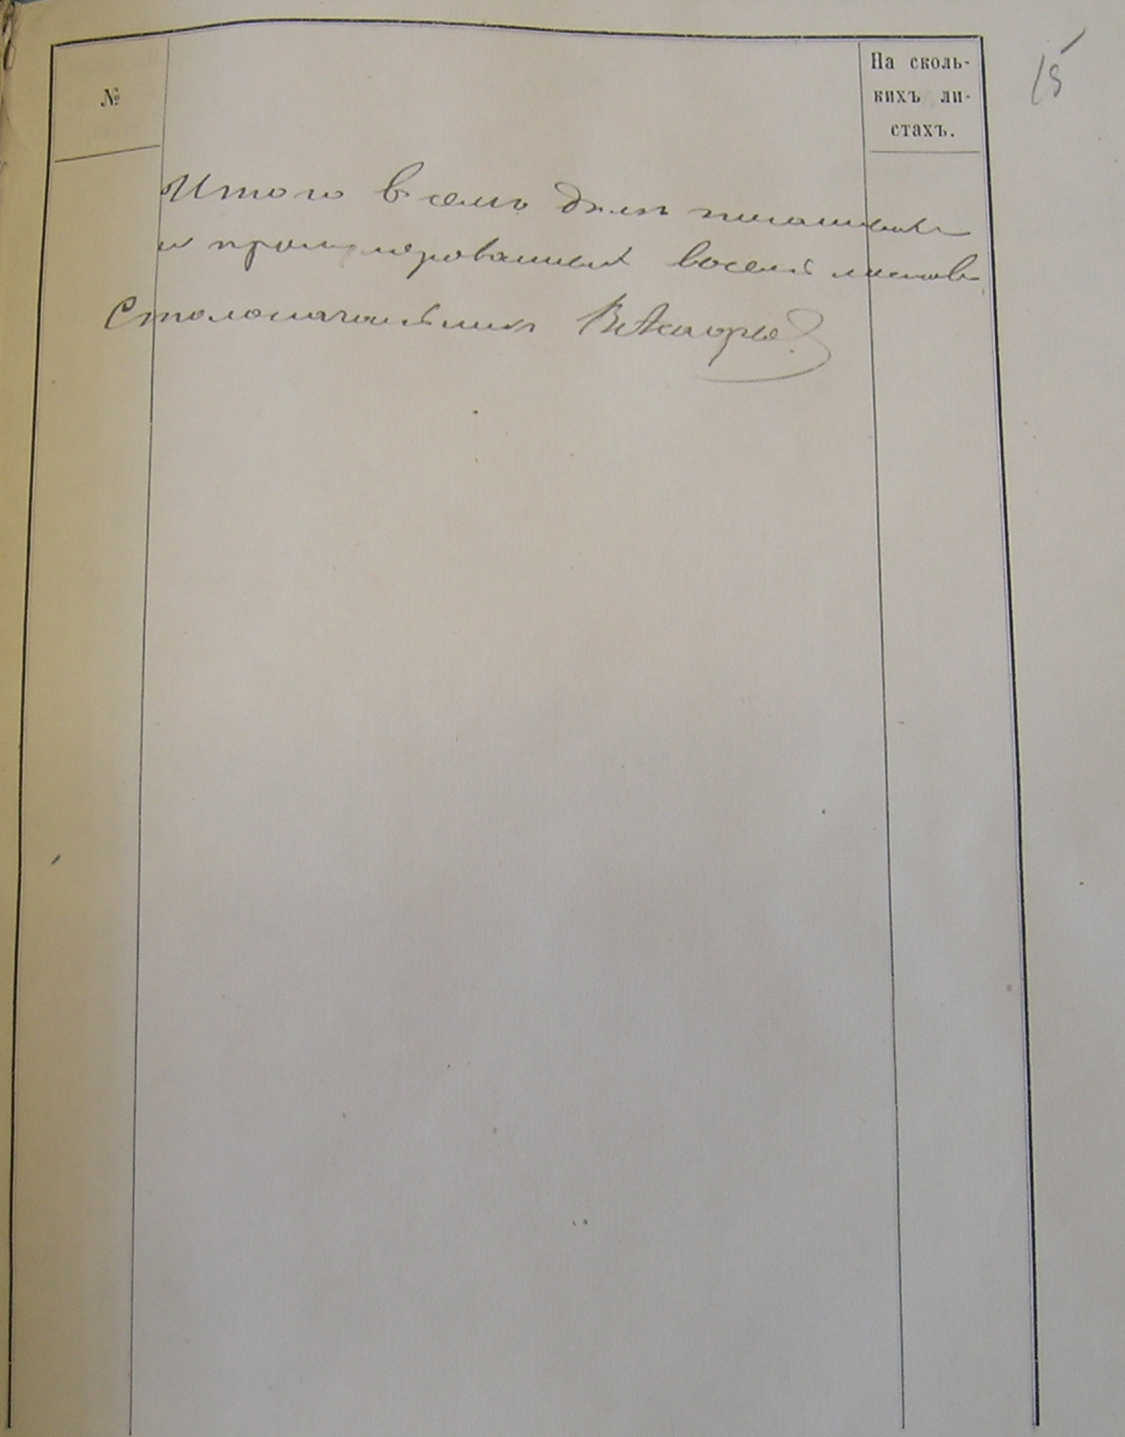 №
На сколь-
кихъ ли-
стахъ.
15
Итого в семъ дѣлѣ писанныхъ
и пронумерованныхъ восемь листовъ
Столоначальникъ